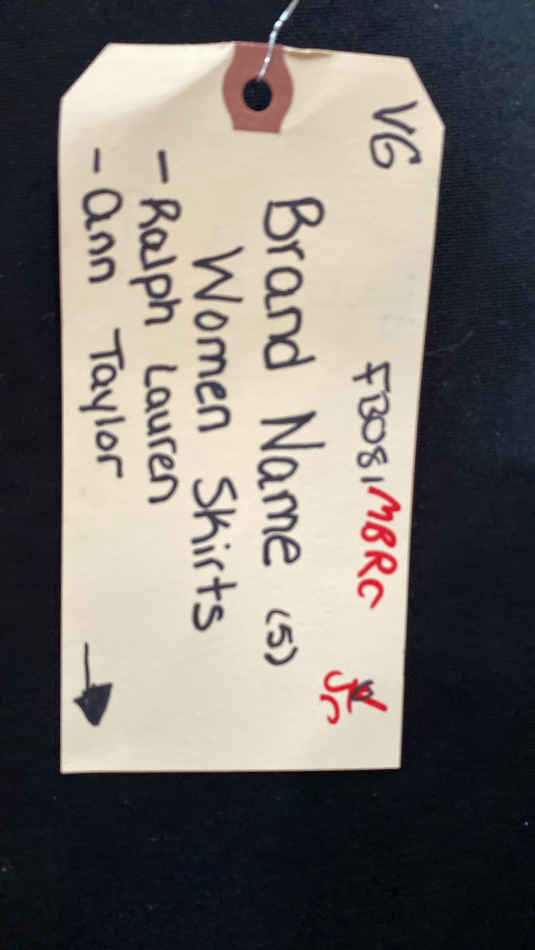 VG
FB081 MBRC
Brand Name (5)
Women Skirts
- Ralph Lauren
- Ann Taylor